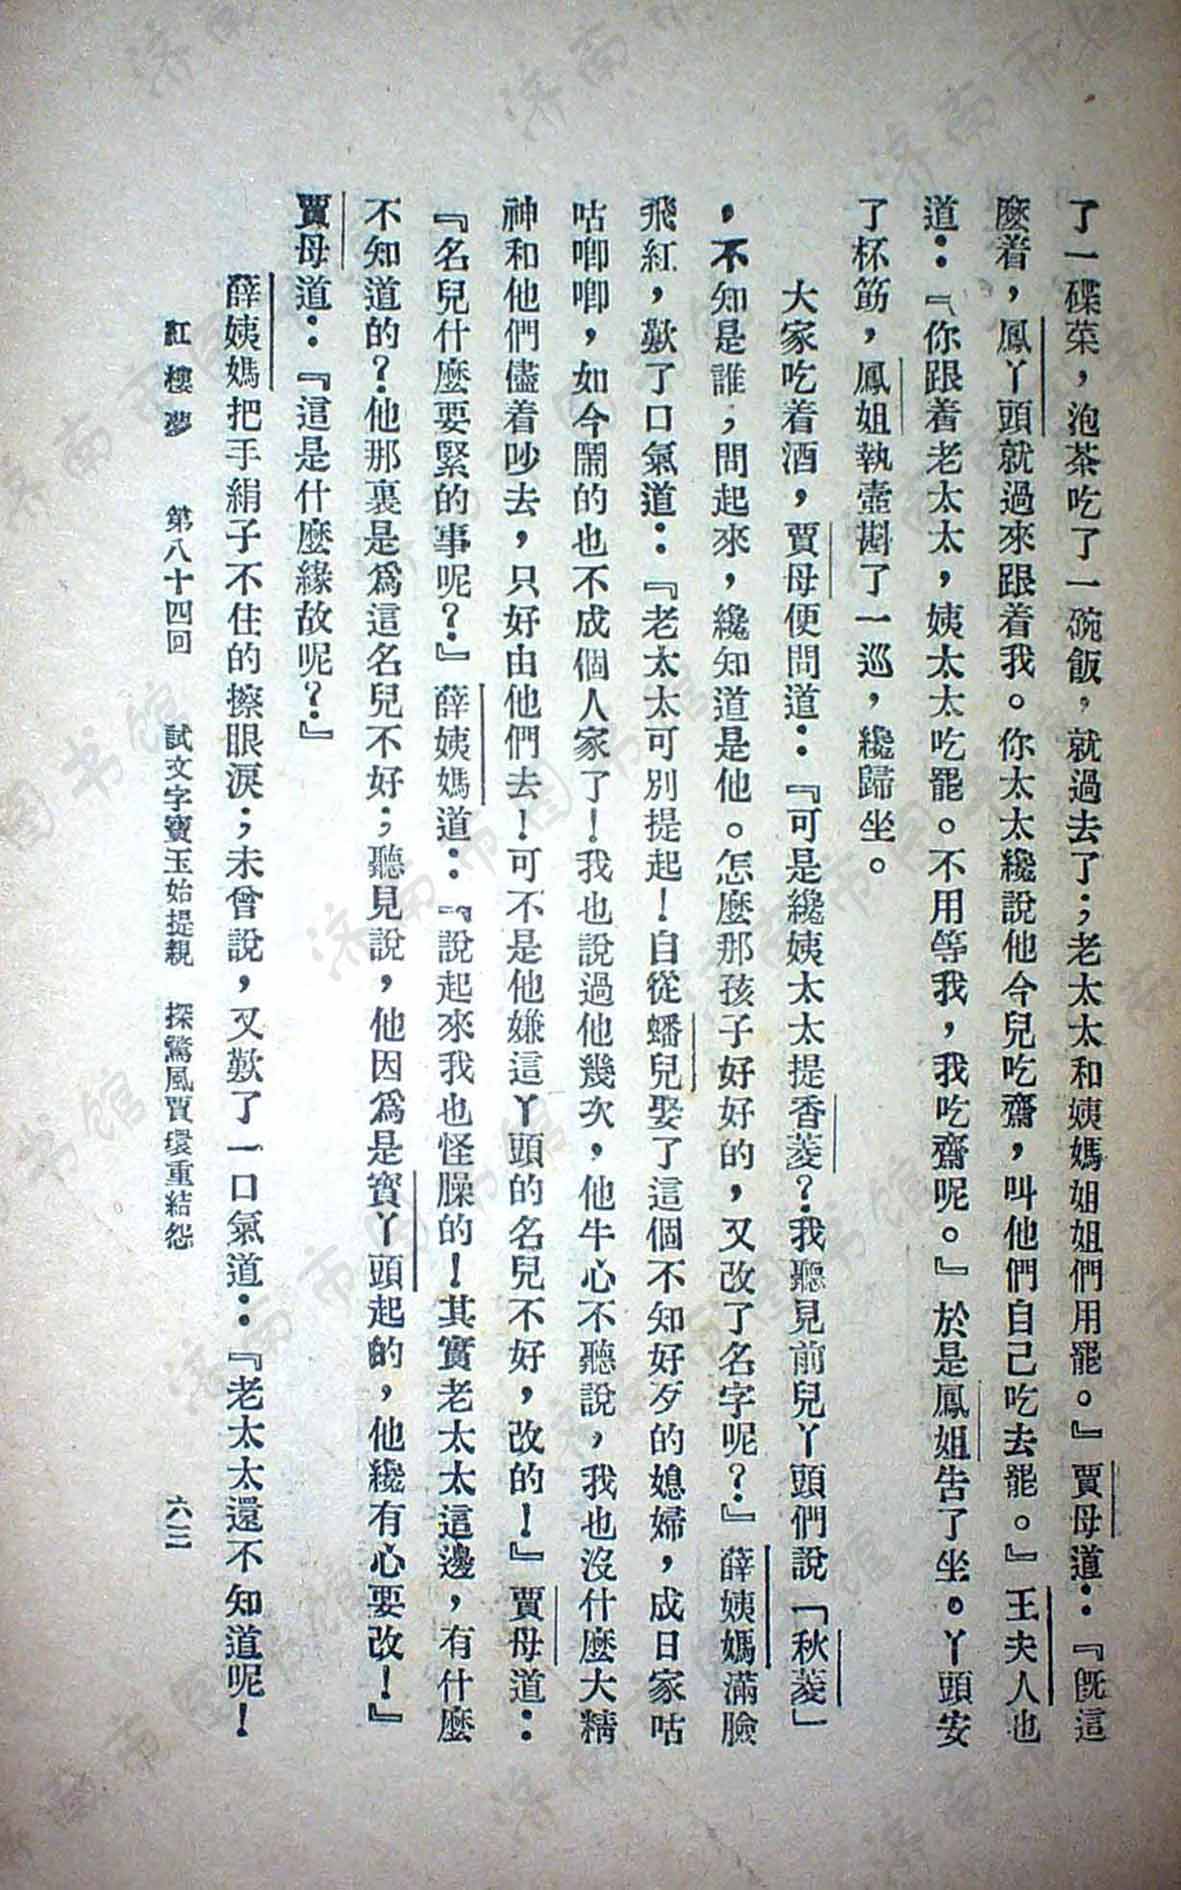 了一碟菜，泡茶吃了一碗飯，就過去了；老太太和姨媽姐姐們用罷。』賈母道：『既這
麼着，鳳丫頭就過來跟着我。你太太纔說他今兒吃齋，叫他們自己吃去罷。』王夫人也
道：『你跟着老太太，姨太太吃罷。不用等我，我吃齋呢。』於是鳳姐告了坐。丫頭安
了杯筯，鳳姐執壺斟了一巡，纔歸坐。
大家吃着酒，賈母便問道：『可是纔姨太太提香菱？我聽見前兒丫頭們說「秋菱」
，不知是誰；問起來，纔知道是他。怎麼那孩子好好的，又改了名字呢？』薛姨媽滿臉
飛紅，歎了口氣道：『老太太可別提起！自從蟠兒娶了這個不知好歹的媳婦，成日家咕
咕唧唧，如今鬧的也不成個人家了！我也說過他幾次，他牛心不聽說，我也沒什麼大精
神和他們儘着吵去，只好由他們去！可不是他嫌這丫頭的名兒不好，改的！』賈母道：
『名兒什麼要緊的事呢？』薛姨媽道：『說起來我也怪臊的！其實老太太這邊，有什麼
不知道的？他那裏是爲這名兒不好；聽見說，他因爲是寶丫頭起的，他纔有心要改！』
賈母道：『這是什麼緣故呢？』
薛姨媽把手絹子不住的擦眼淚；未曾說，又歎了一口氣道：『老太太還不知道呢！
紅樓夢　第八十四回　試文字寶玉始提親　探驚風賈環重結怨　六三
济南市图书馆
济南市图书馆
济南市图书馆
济南市图书馆